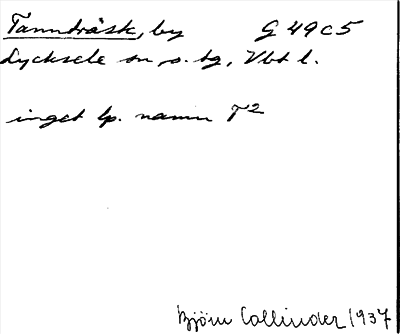 Tannträsk, by G 49 c 5
Lycksele sn o. tg, Vbt l.
inget lp. namn T²
Björn Collinder 1937